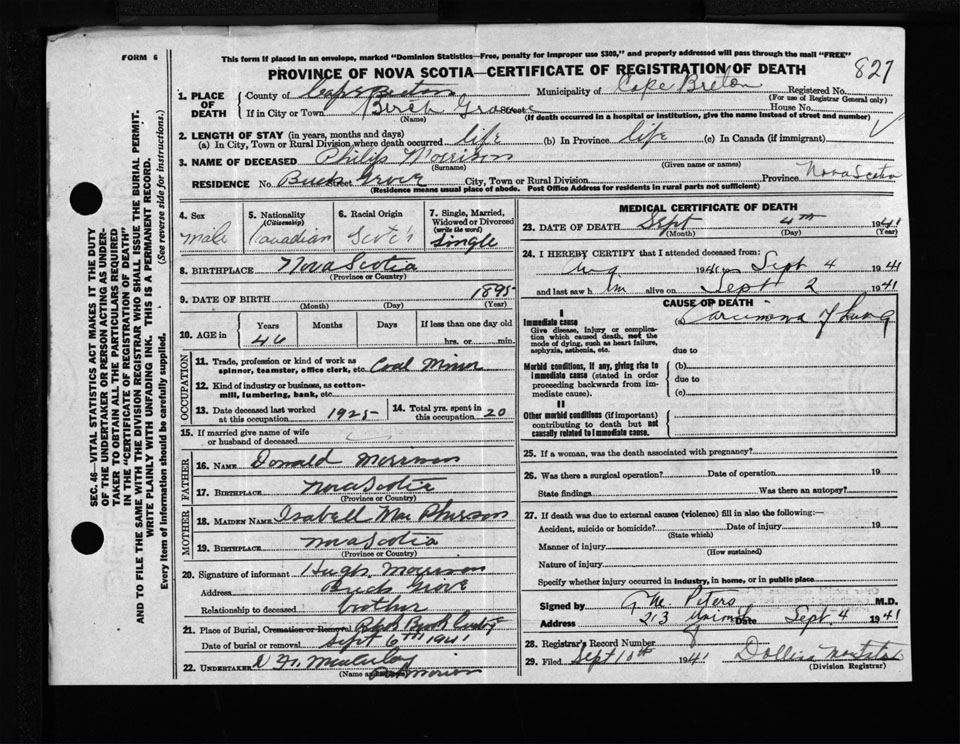 FORM 6
This form if placed in an envelope, marked "Dominion Statistics—Free, penalty for improper use $300," and properly addressed will pass through the mail "FREE"
PROVINCE OF NOVA SCOTIA—CERTIFICATE OF REGISTRATION OF DEATH
827
SEC. 46—VITAL STATISTICS ACT MAKES IT THE DUTY
OF THE UNDERTAKER OR PERSON ACTING AS UNDER-
TAKER TO OBTAIN ALL THE PARTICULARS REQUIRED
IN THE "CERTIFICATE OF REGISTRATION OF DEATH"
AND TO FILE THE SAME WITH THE DIVISION REGISTRAR WHO SHALL ISSUE THE BURIAL PERMIT.
WRITE PLAINLY WITH UNFADING INK. THIS IS A PERMANENT RECORD.
Every item of information should be carefully supplied. (See reverse side for instructions.)
1. PLACE OF DEATH
County of Cape Breton Municipality of Cape Breton Registered No.
(For use of Registrar General only)
If in City or Town Birch Grove Street House No.
(Name) (If death occurred in a hospital or institution, give the name instead of street and number)
2. LENGTH OF STAY (in years, months and days)
(a) In City, Town or Rural Division where death occurred life (b) In Province life (c) In Canada (if immigrant)
3. NAME OF DECEASED Philip Morrison
(Surname) (Given name or names)
RESIDENCE No. Grove City, Town or Rural Division Province Nova Scotia
(Residence means usual place of abode. Post Office Address for residents in rural parts not sufficient)
4. Sex Male
5. Nationality (Citizenship) Canadian
6. Racial Origin
7. Single, Married, Widowed or Divorced (write the word) Single
8. BIRTHPLACE Nova Scotia
(Province or Country)
9. DATE OF BIRTH 1895
(Month) (Day) (Year)
10. AGE in Years Months Days If less than one day old
46 hrs. or min.
OCCUPATION
11. Trade, profession or kind of work as spinner, teamster, office clerk, etc. Coal Miner
12. Kind of industry or business, as cotton-mill, lumbering, bank, etc.
13. Date deceased last worked at this occupation 1925
14. Total yrs. spent in this occupation 20
15. If married give name of wife or husband of deceased
FATHER
16. NAME Donald Morrison
17. BIRTHPLACE Nova Scotia
(Province or Country)
MOTHER
18. MAIDEN NAME Isabell Mac Pherson
19. BIRTHPLACE Nova Scotia
(Province or Country)
20. Signature of informant Hugh Morrison
Address Birch Grove
Relationship to deceased brother
21. Place of Burial, Cremation or Removal
Date of burial or removal Sept 6th 1941
22. UNDERTAKER
(Name and address)
MEDICAL CERTIFICATE OF DEATH
23. DATE OF DEATH Sept 4th 1941
(Month) (Day) (Year)
24. I HEREBY CERTIFY THAT I attended deceased from:
Aug 1941 to Sept 4 1941
and last saw h im alive on Sept 2 1941
CAUSE OF DEATH
I
Immediate cause
Give disease, injury or complication which caused death, not the mode of dying, such as heart failure, asphyxia, asthenia, etc.
Carcinoma of Lung
due to
Morbid conditions, if any, giving rise to immediate cause (stated in order proceeding backwards from immediate cause).
(b)
due to
(c)
II
Other morbid conditions (if important) contributing to death but not causally related to immediate cause.
25. If a woman, was the death associated with pregnancy?
26. Was there a surgical operation? Date of operation 19
State findings Was there an autopsy?
27. If death was due to external causes (violence) fill in also the following:—
Accident, suicide or homicide? Date of injury 19
(State which)
Manner of injury
(How sustained)
Nature of injury
Specify whether injury occurred in industry, in home, or in public place
Signed by M. Peters M.D.
Address 213 Union St Sept. 4 1941
28. Registrar's Record Number
29. Filed Sept 10th 1941
(Division Registrar)